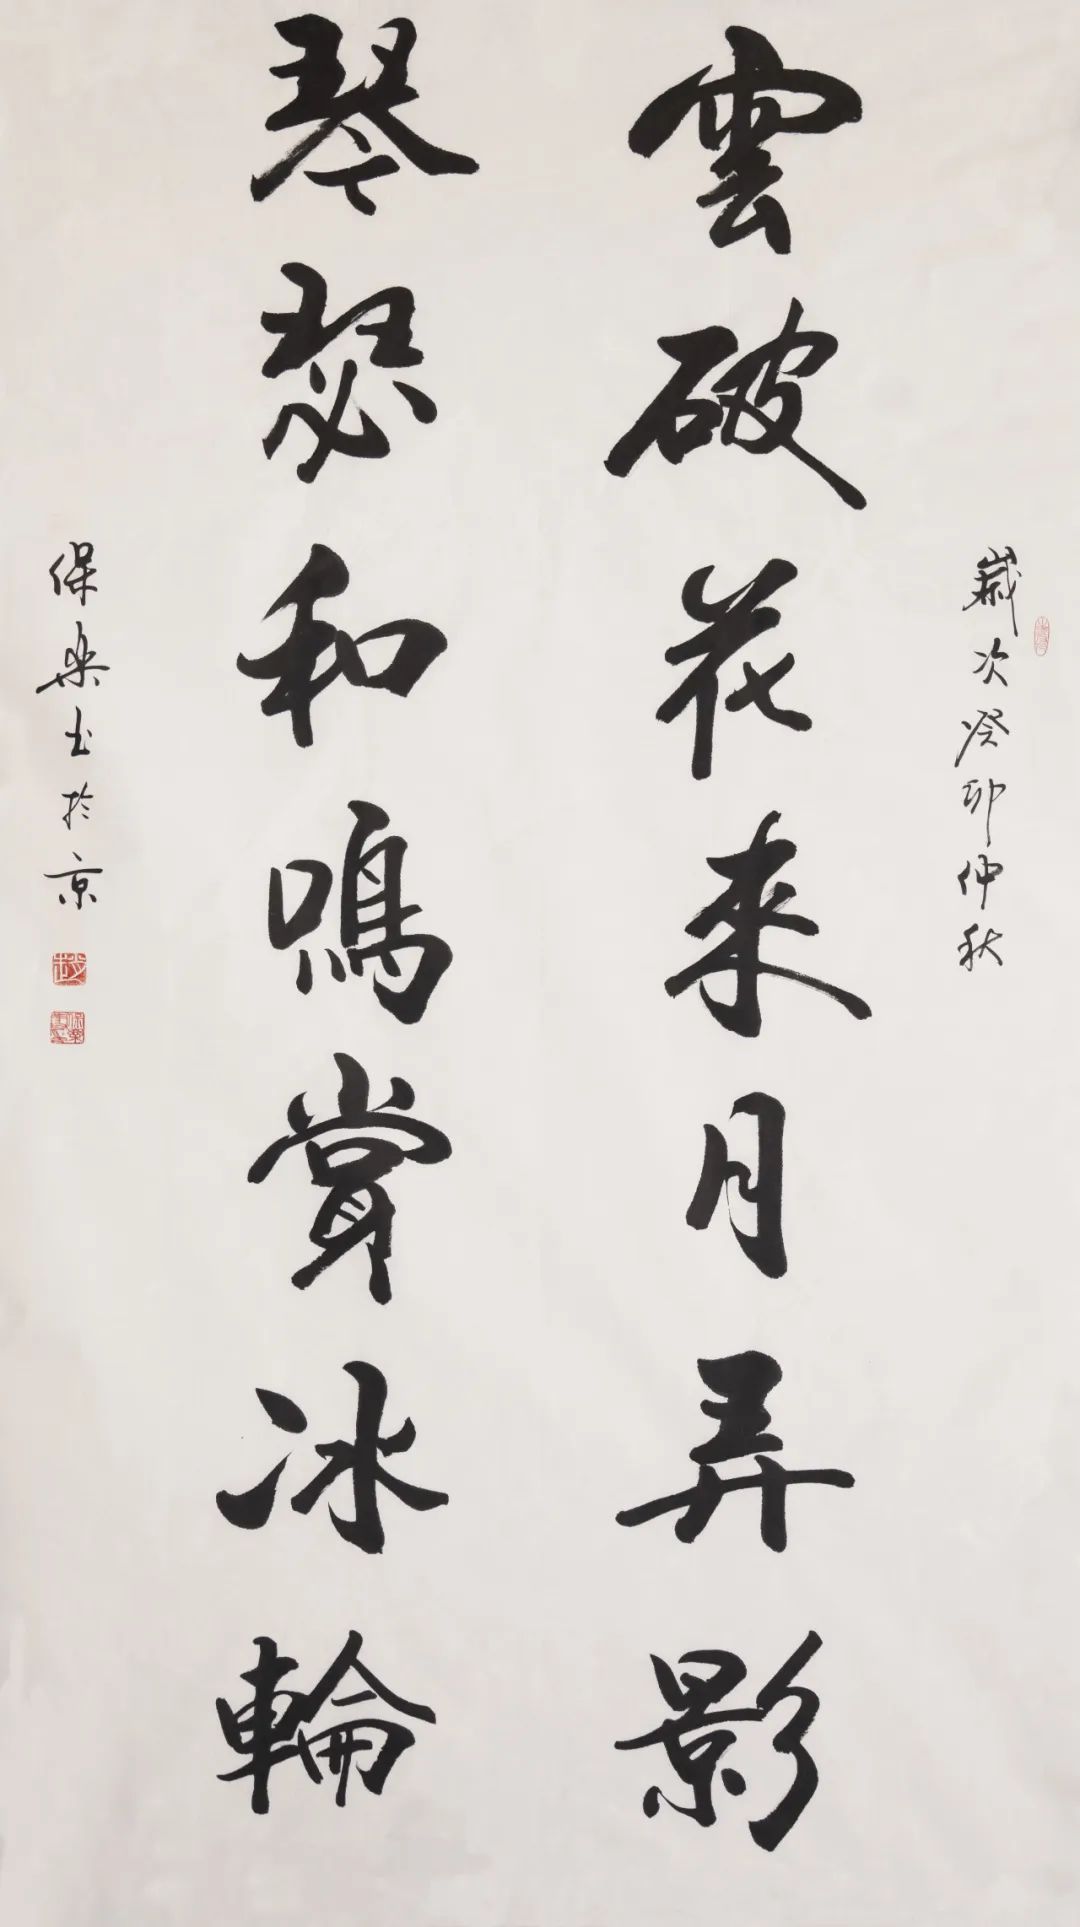 歲次癸卯仲秋
雲破花來月弄影
琴瑟和鳴賞冰輪
保樂书於京